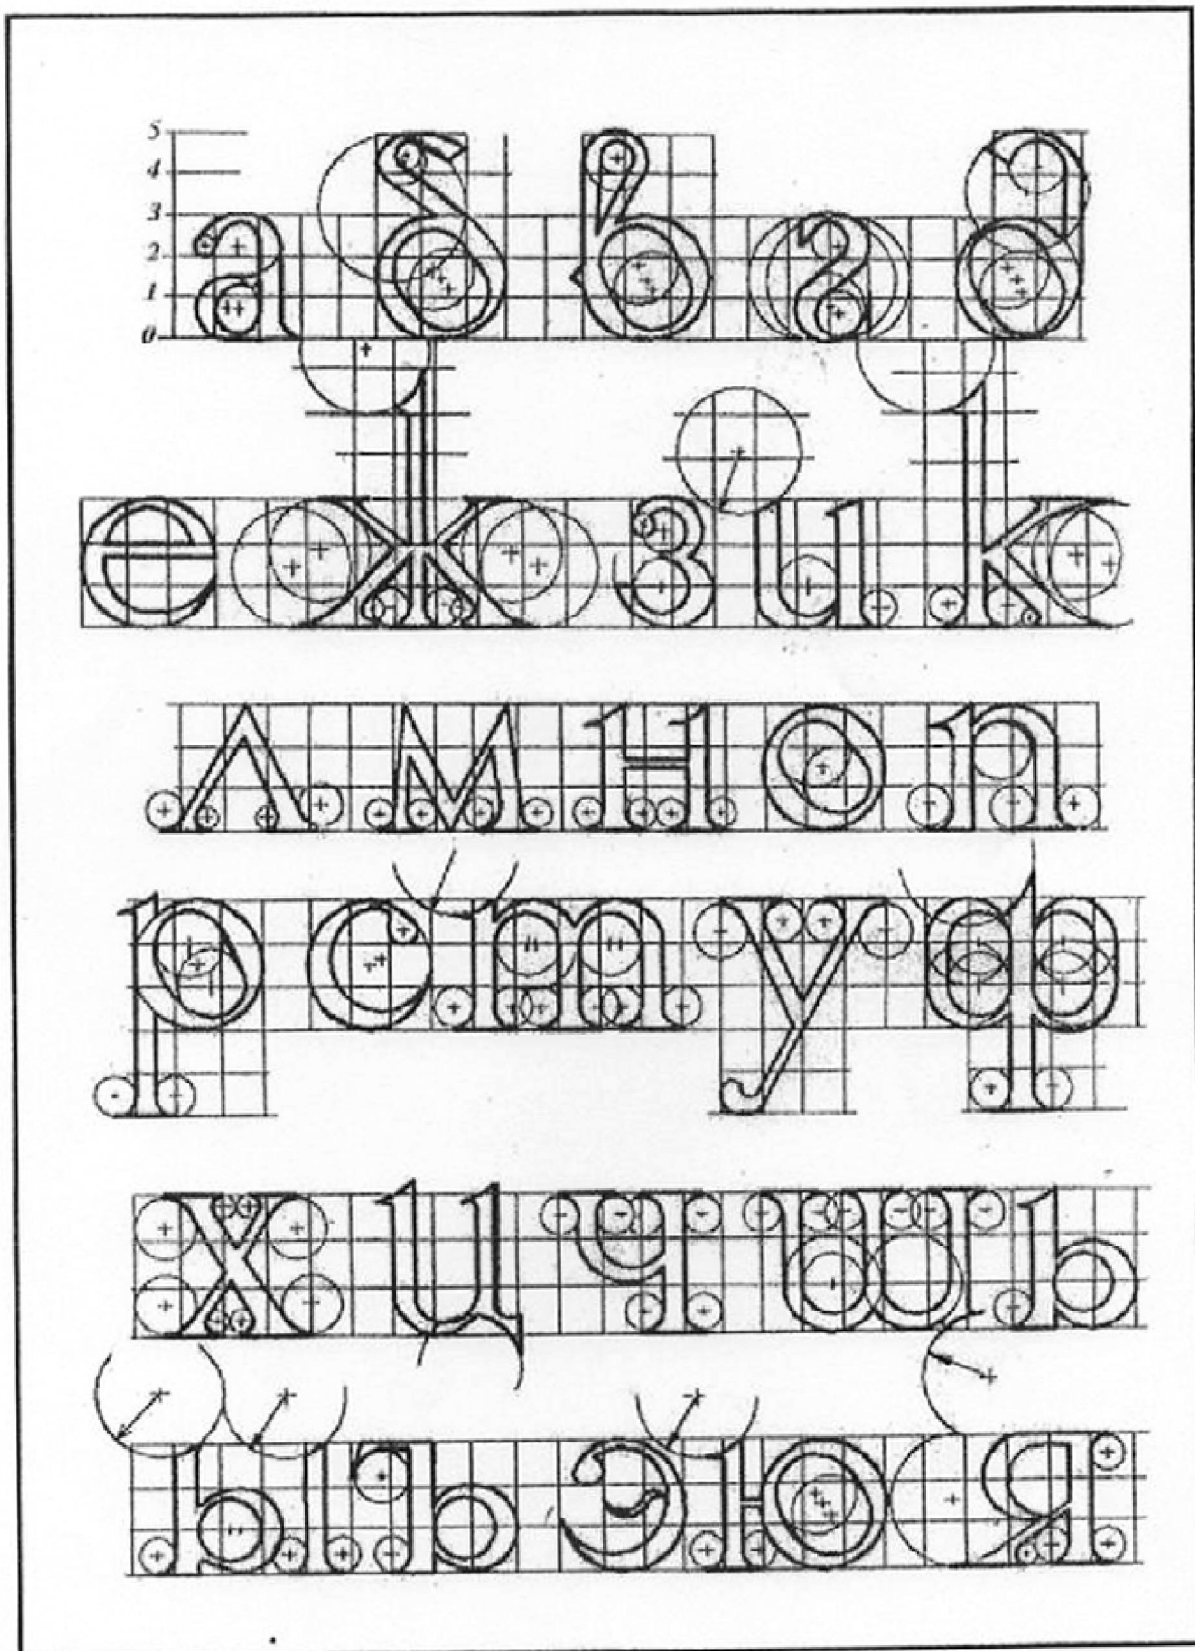 5
4
3
2
1
0
а б в г д
е ж з и к
л м н о п
р с т у ф
х ц ч ш ь
ы ъ э ю я